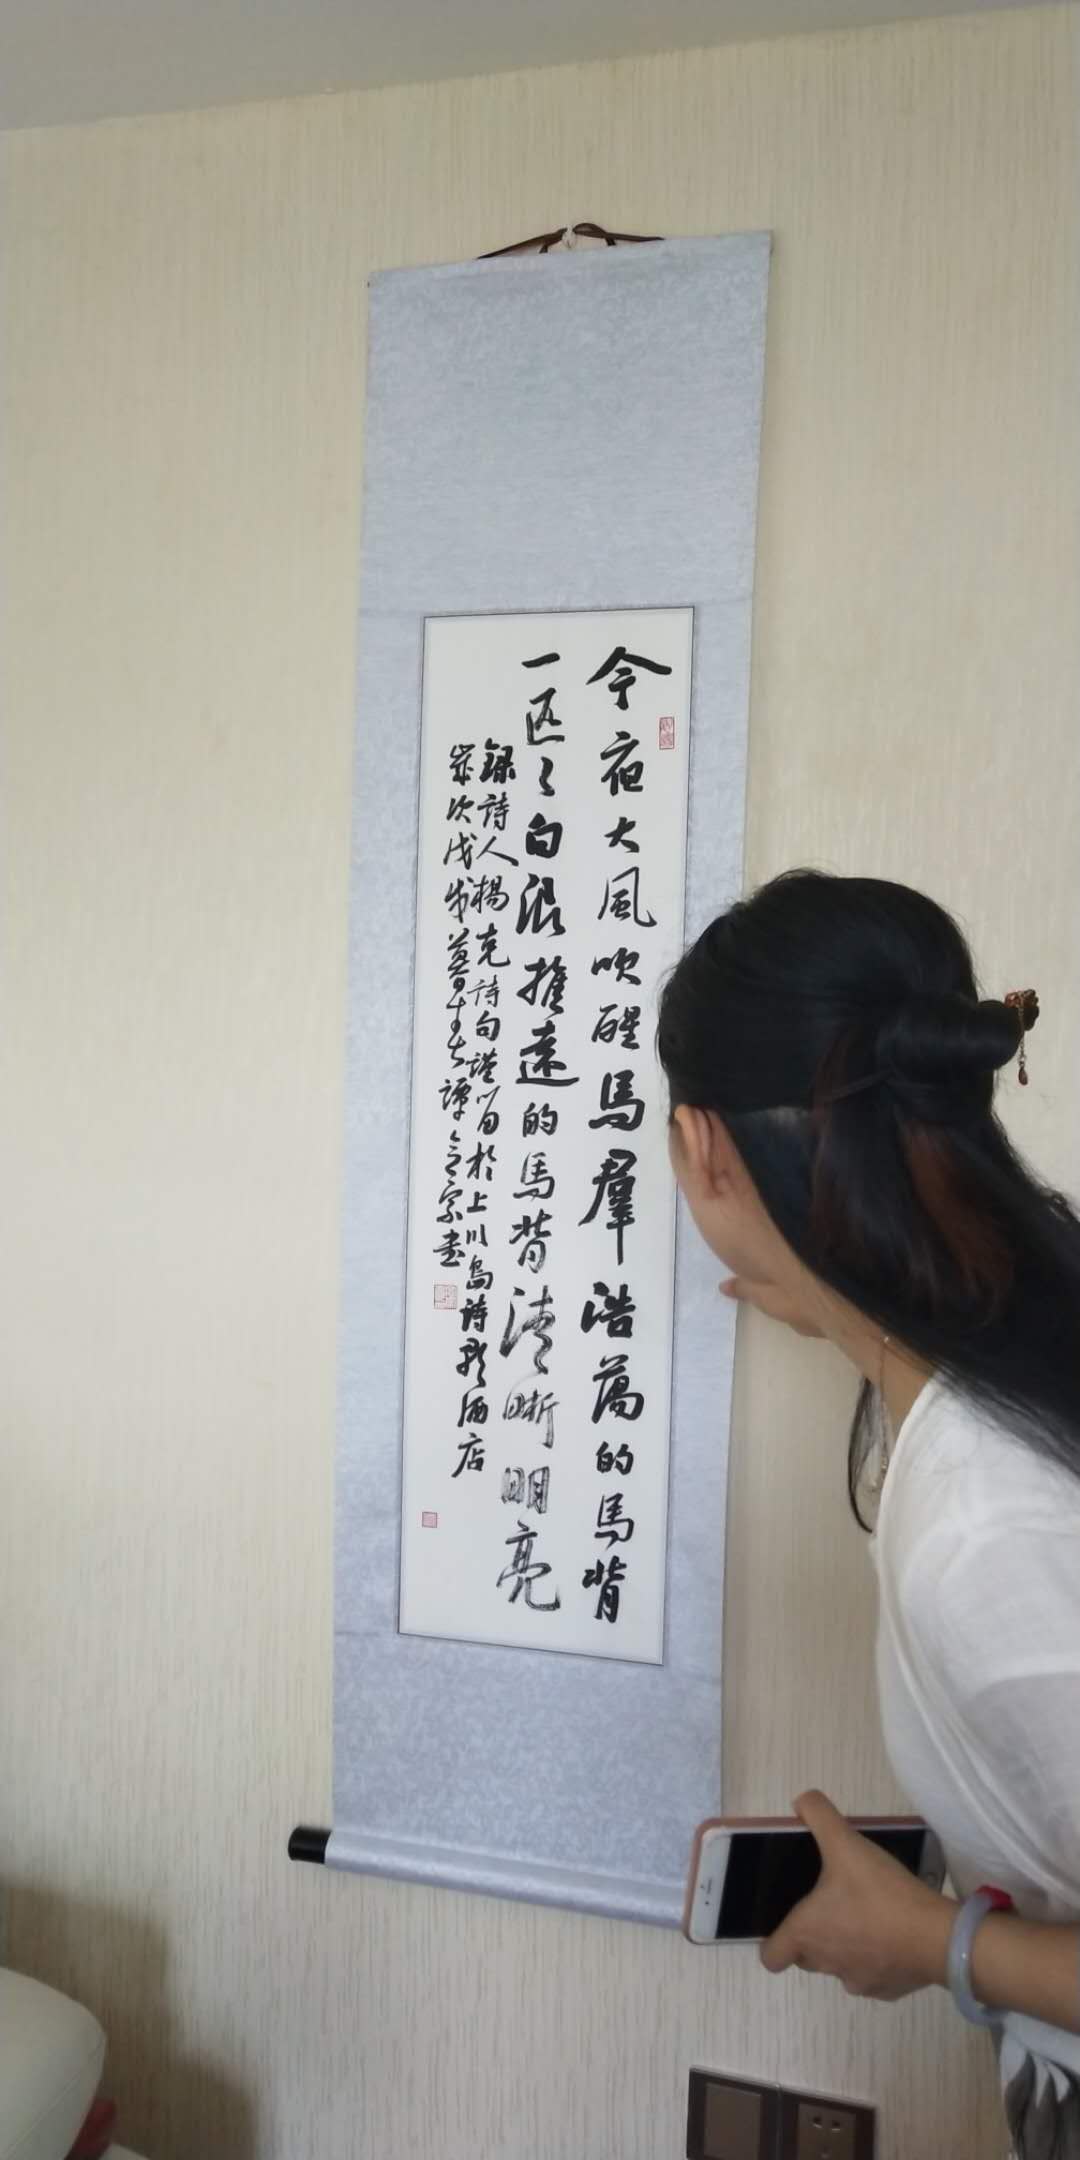 今夜大風吹醒馬羣浩蕩的馬背
一匹々白浪推遠的馬背清晰明亮
録詩人楊克詩句謹留於上川島詩歌酒店
歲次戊戌暮春譚
宗書